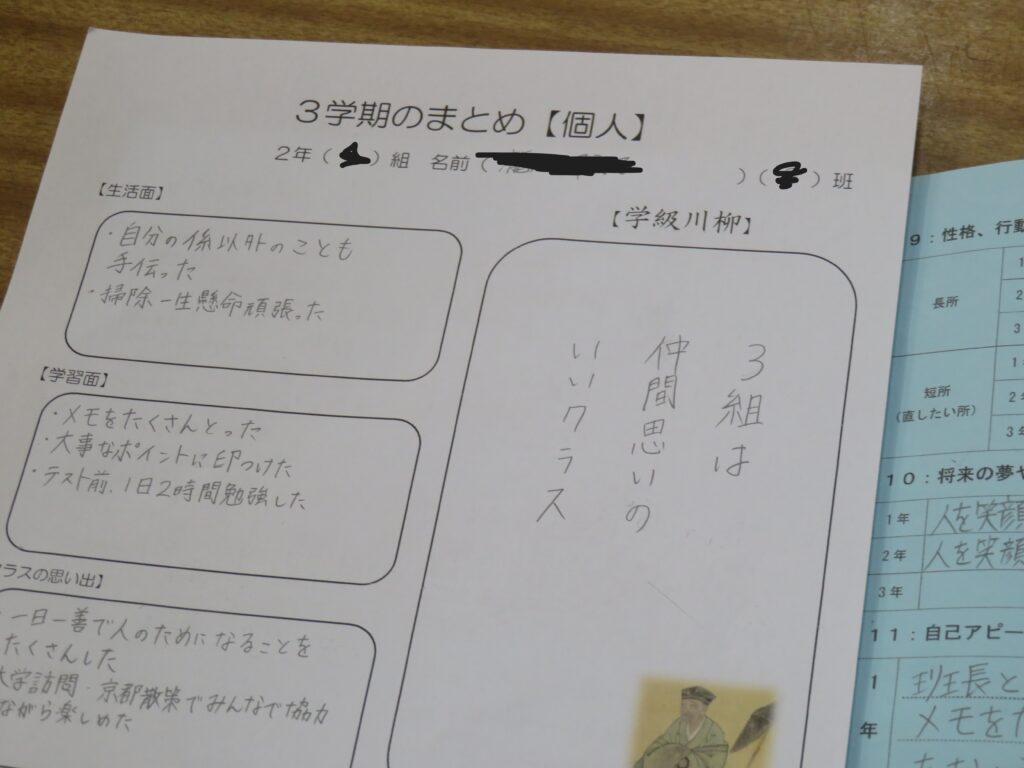 3学期のまとめ【個人】
2年( )組 名前( )( )班
【生活面】
・自分の係以外のことも
手伝った
・掃除一生懸命頑張った
【学習面】
・メモをたくさんとった
・大事なポイントに印つけた
・テスト前、1日2時間勉強した
ラスの思い出】
・一日一善で人のためになることを
たくさんした
大学訪問・京都散策でみんなで協力
ながら楽しめた
【学級川柳】
3組は
仲間思いの
いいクラス
9:性格、行動
長所
1
2
3
短所
(直したい所)
1
2年
3年
10:将来の夢や
1年 人を笑顔
2年 人を笑顔
3年
11:自己アピー
1
年
班長と
メモをた